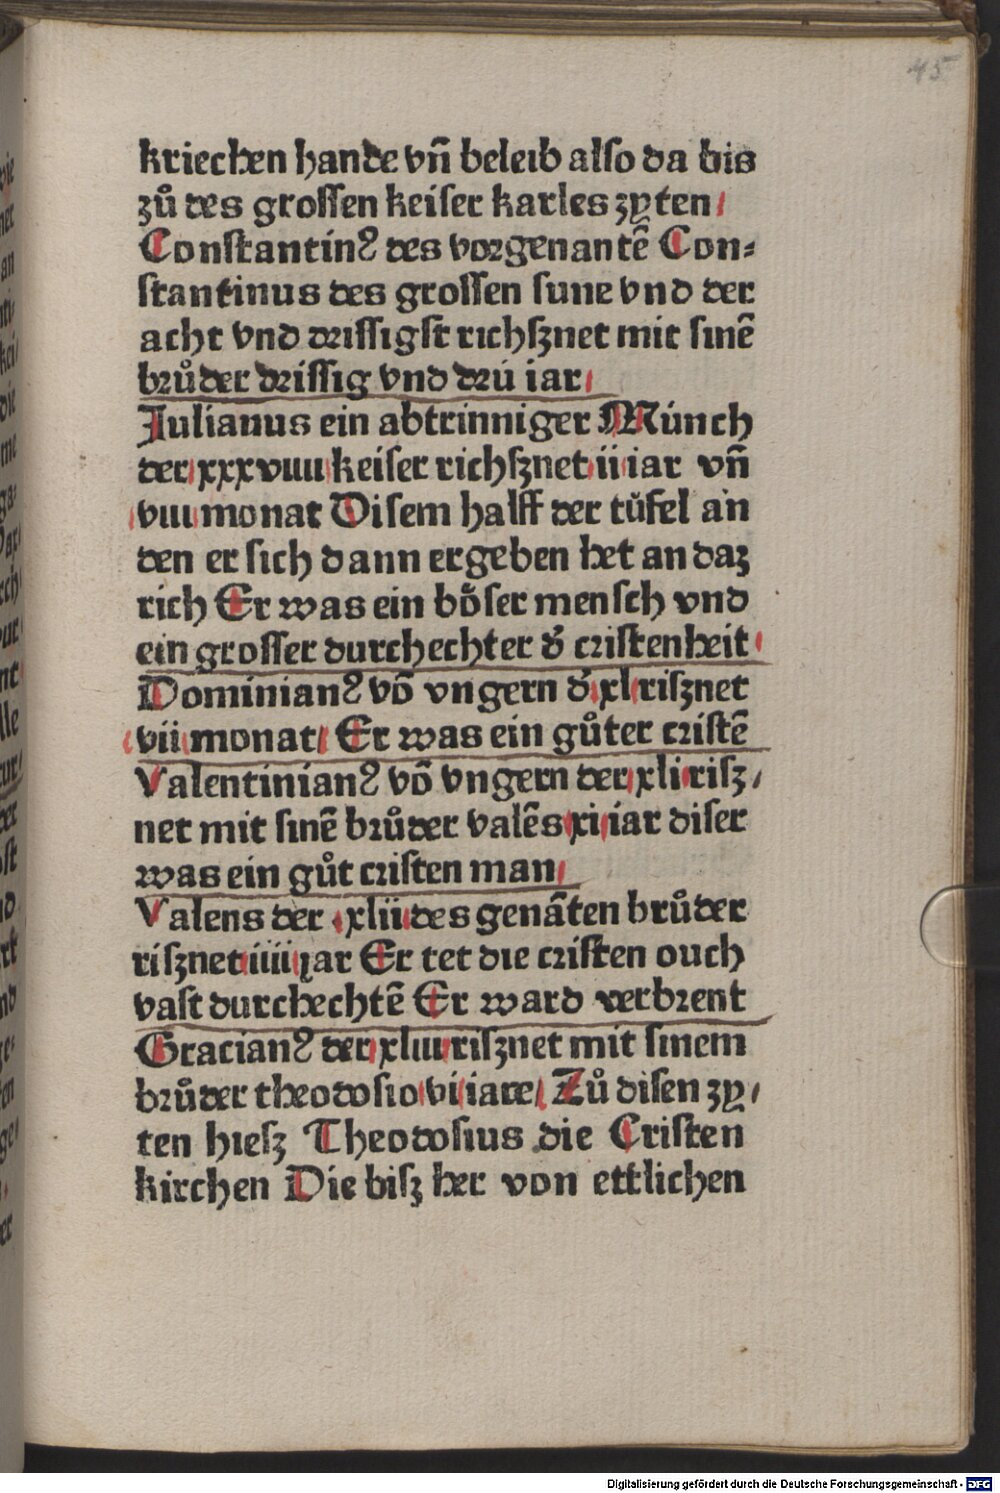 45
kriechen hande vn̄ beleıb alſo da bis
zů des groſſen keiſer karles zyten /
Conſtantinꝰ des vorgenantē Con⸗
ſtantinus des groſſen ſune vnd der
acht vnd driſſigſt richſznet mit ſinē
brůder driſſig vnd drú iar /
Julianus ein abtrinniger Múnch
der xxxvııı keiſer richſznet ii iar vn̄
vııı monat Diſem halff der tǔfel an
den er ſich dann ergeben het an daz
rich Er was ein bǒſer menſch vnd
ein groſſer durchechter d᷑ criſtenheit
Dominianꝰ vō vngern d᷑ xl riſznet
vii monat / Er was ein gůter criſtē
Valentinianꝰ vō vngern der xli riſz /
net mit ſinē brůder valēs xi iar diſer
was ein gůt criſten man /
Valens der xlii des genāten brůder
riſznet iiii ȷar Er tet dıe criſten ouch
vaſt durchechtē Er ward verbrent
Gracianꝰ der xlııı riſznet mit ſinem
brůder theodoſio vi iare / Zů diſen zy /
ten hıeſz Theodoſius die Criſten
kirchen Die biſz her von ettlichen
Digitalisierung gefördert durch die Deutsche Forschungsgemeinschaft - DFG